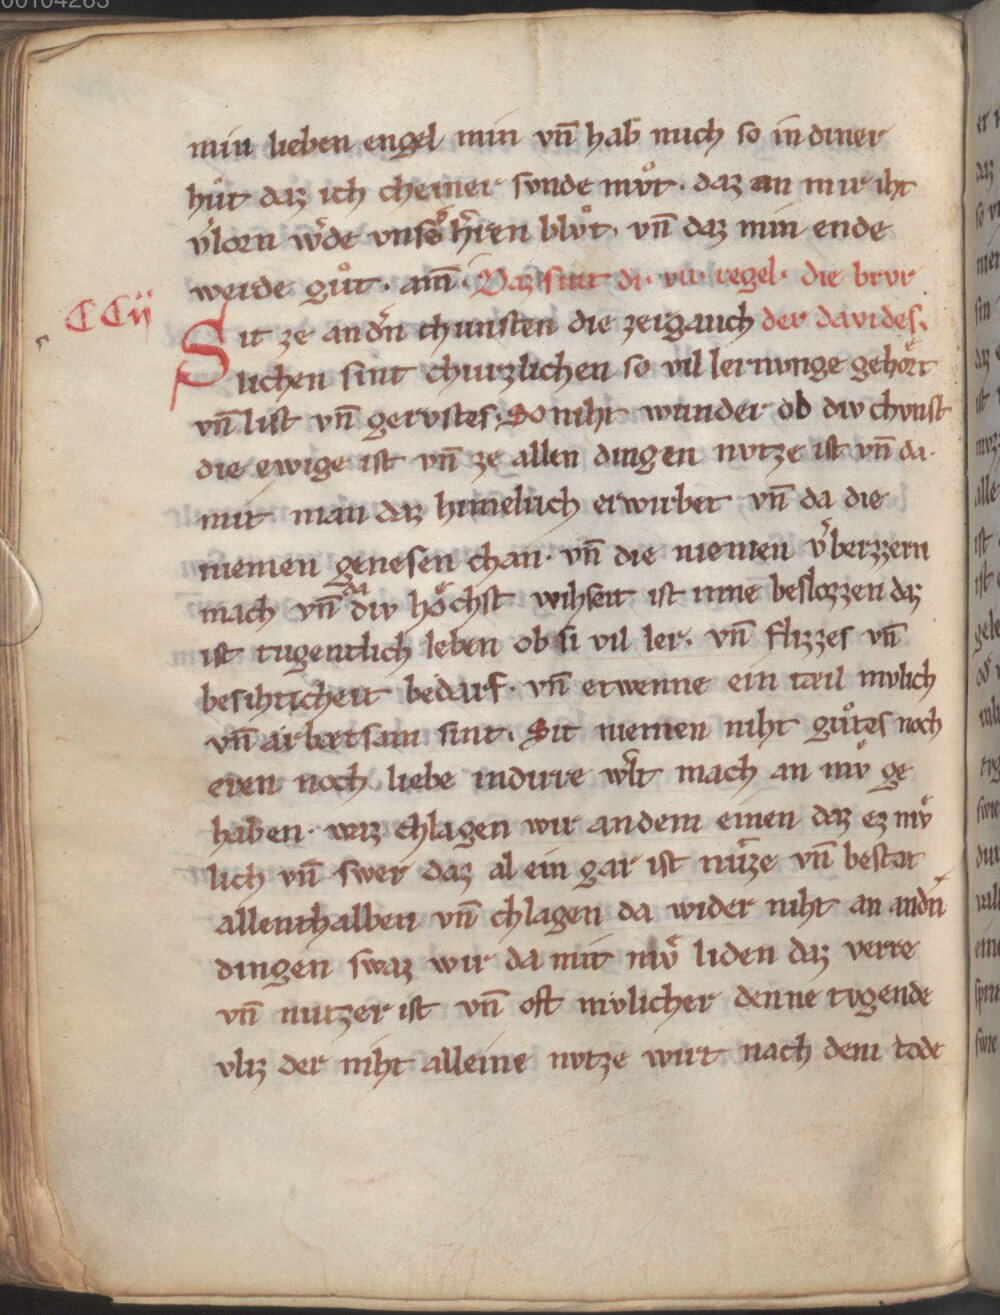 00104263
min lieben engel min vn̄ hab mich so in diner
hůt daz ich cheiner svnde mvͦt · daz an mir iht
v͛lorn w͛de vnsͦ h͛ren blvͦt · vn̄ daz min ende
werde gůt · am̄ · Daz sint di · vii · regel · die brvͦ
CCii
Sit ze and͛n chunsten die zergæuch der davides.
lichen sint churzlichen so vil lernunge gehoͤrt
vn̄ list vn̄ gervstes · So niht wunder ob div chvnst
die ewige ist vn̄ ze allen dingen nvtze ist vn̄ da·
mit man daz himelrich erwirbet vn̄ da die
niemen genesen chan · vn̄ die niemen v͛berzzern
mach vn̄ da div hoͤchst wihseit ist inne beslozzen daz
ist tugentlich leben ob si vil ler · vn̄ flizzes vn̄
besihticheit bedarf · vn̄ etwenne ein teil mvlich
vn̄ arbeitsam sint · Sit niemen niht gůtes noch
eren noch liebe in dirre w͛lt mach an mvͤ ge
haben · waz chlagen wir an dem einen daz ez mvͤ
lich vn̄ swer daz al ein gar ist nutze vn̄ bestat
allenthalben vn̄ chlagen da wider niht an and͛n
dingen swaz wir da mit mvͤ liden daz verre
vn̄ nutzer ist vn̄ oft mvlicher denne tvgende
vliz der niht alleine nvtze wirt nach dem tode